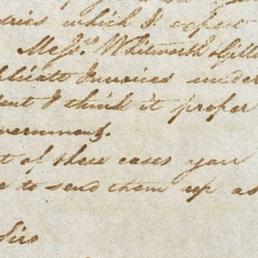 which I expect
Messrs. Whitworth Gillo
plicate Invoices under
ent I think it proper
vernment.
t of these cases you
e to send them up as
Sirs